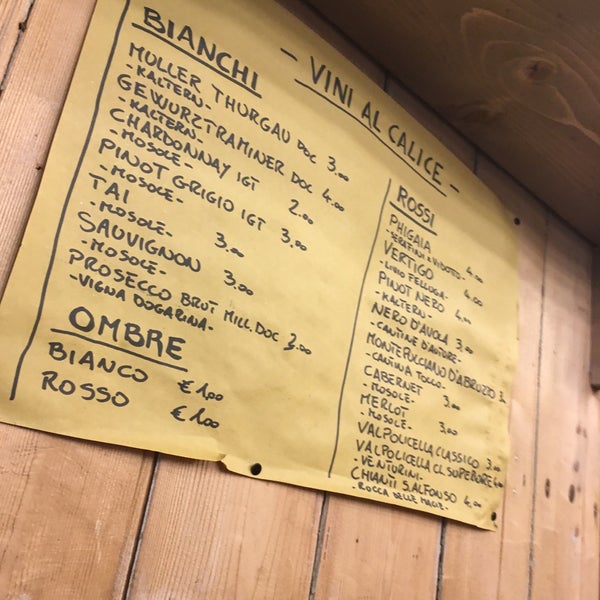 - VINI AL CALICE -
BIANCHI
MÜLLER THURGAU DOC 3.00
- KALTERN -
GEWÜRZTRAMINER DOC 4.00
- KALTERN -
CHARDONNAY IGT 2.00
- MOSOLE -
PINOT GRIGIO IGT 3.00
- MOSOLE -
TAI 3.00
- MOSOLE -
SAUVIGNON 3.00
- MOSOLE -
PROSECCO BRUT MILL. DOC 3.00
- VIGNA DOGARINA -
OMBRE
BIANCO € 1,00
ROSSO € 1,00
ROSSI
PHIGAIA 4.00
- SERAFINI E VIDOTTO -
VERTIGO 4.00
- LIVIO FELLUGA -
PINOT NERO 4.00
- KALTERN -
NERO D'AVOLA 3.00
- CANTINE D'AUTORE -
MONTEPULCIANO D'ABRUZZO 3.
- CANTINA TOLLO -
CABERNET 3.00
- MOSOLE -
MERLOT 3.00
- MOSOLE -
VALPOLICELLA CLASSICO 3.00
VALPOLICELLA CL. SUPERIORE 4.00
- VENTURINI -
CHIANTI S. ALFONSO 4.00
- ROCCA DELLE MACIE -